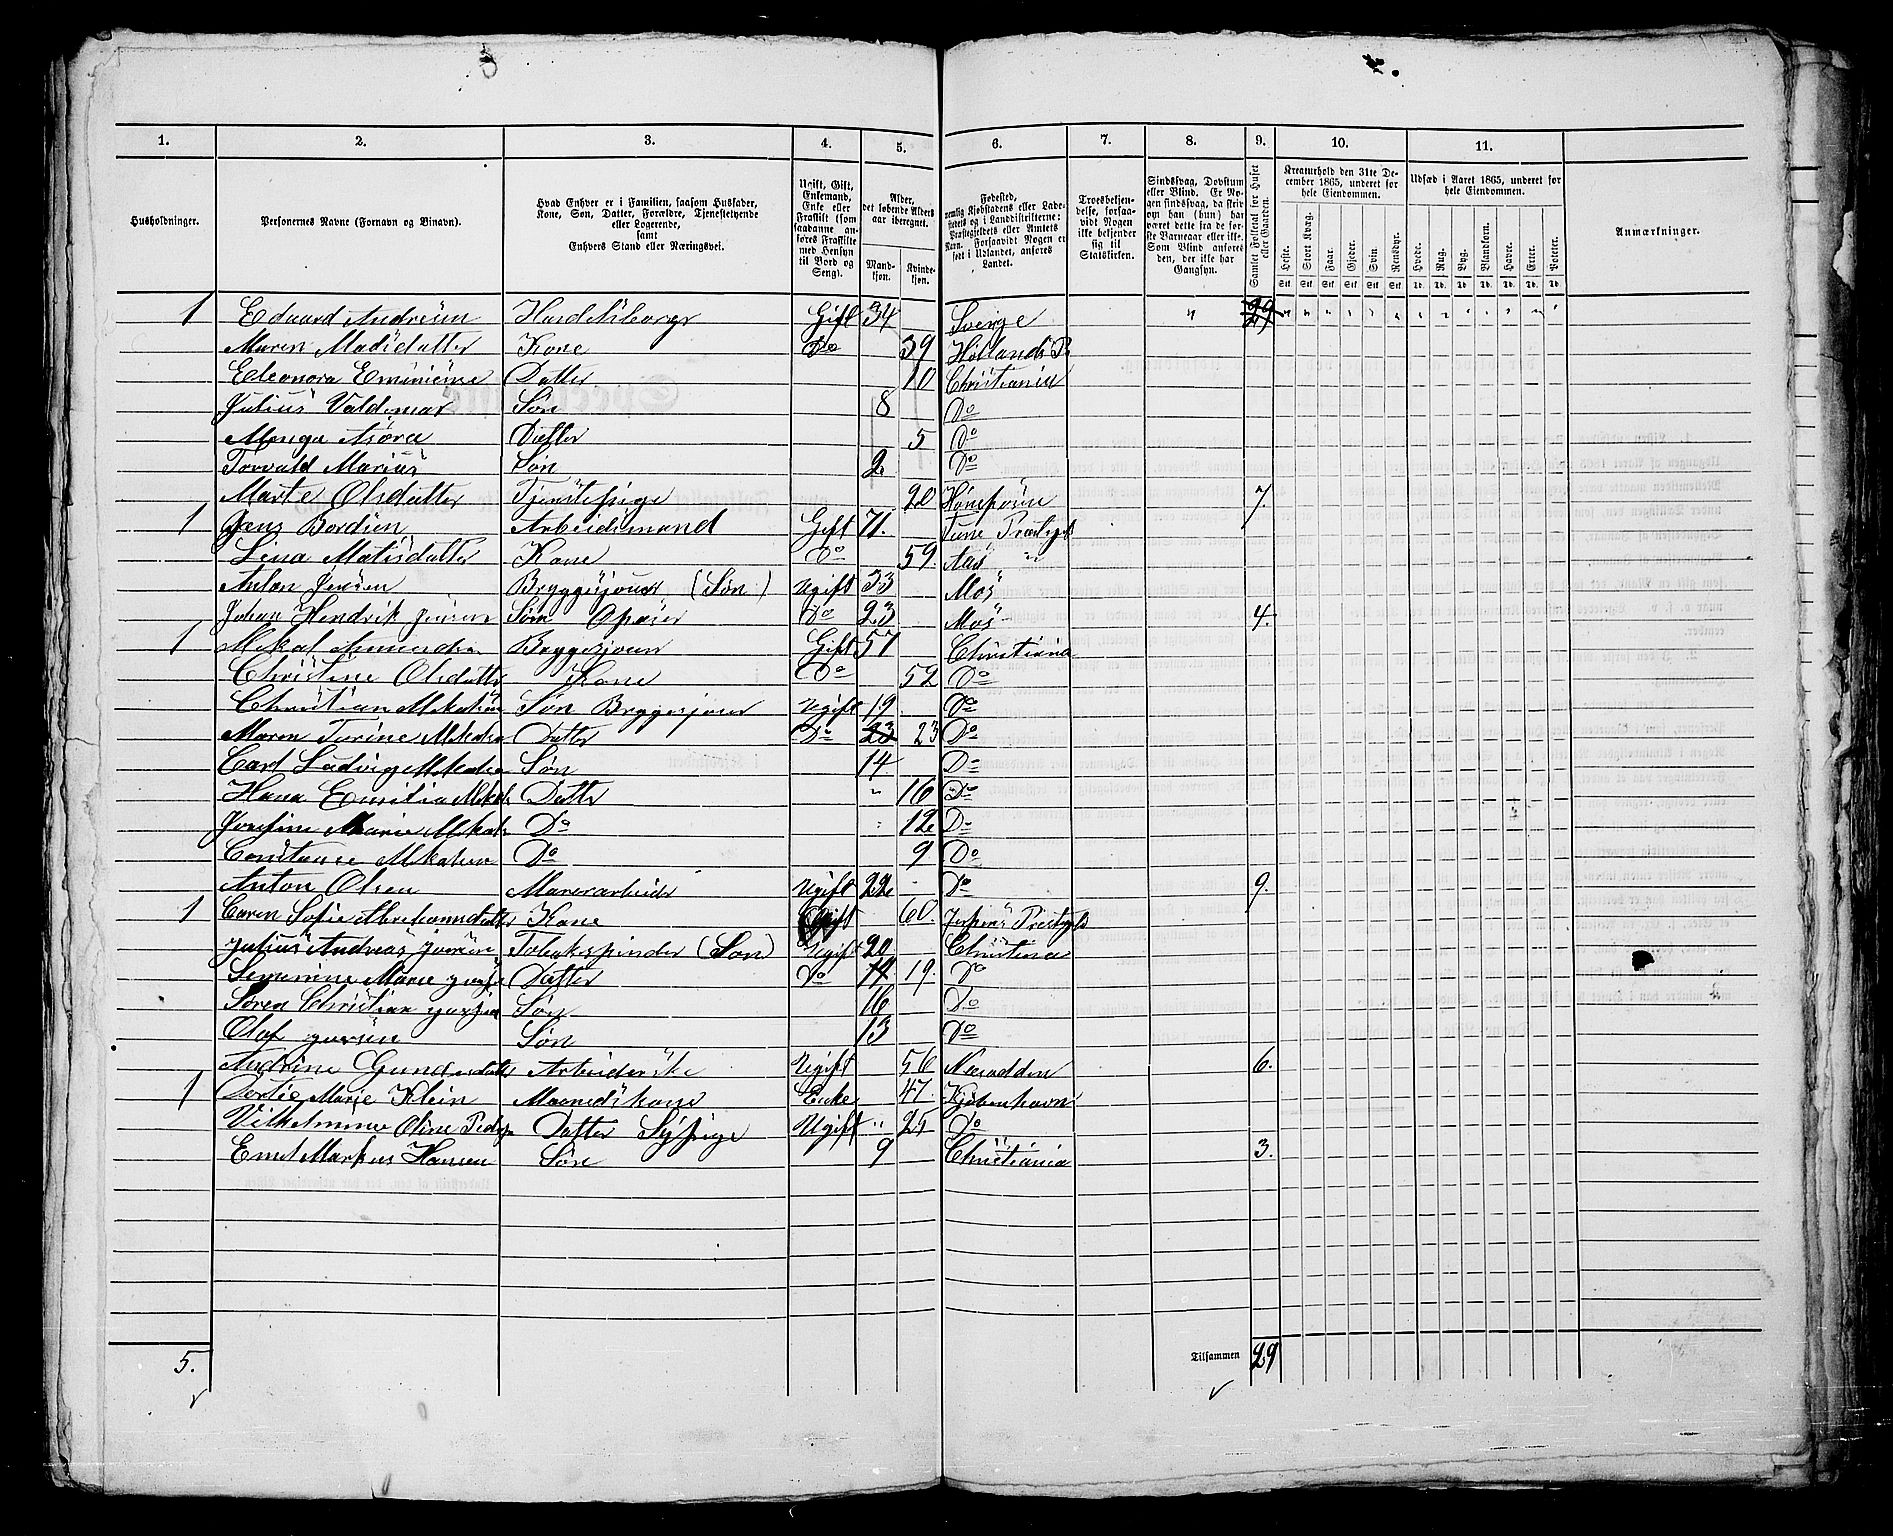 1. 2. 3. 4. 5. 6. 7. 8. 9. 10. 11.
Husholdninger.
Personernes Navne (Fornavn og Binavn).
Hvad Enhver er i Familien, saasom Husfader, Kone, Søn, Datter, Forældre, Tjenestetyende eller Logerende, samt Enhvers Stand eller Næringsvei.
Ugift, Gift, Enkemand, Enke eller Fraskilt (som saadanne anføres Fraskilte med Hensyn til Bord og Seng).
Alder, det løbende Alders aar iberegnet.
Mandkjøn. Kvindekjøn.
Fødested, nemlig Kjøbstadens eller Ladestedets og i Landdistrikterne: Præstegjeldets eller Amtets Navn. Forsaavidt Nogen er født i Udlandet, anføres Landet.
Troesbekjendelse, forsaavidt Nogen ikke bekjender sig til Statskirken.
Sindssvag, Døvstum eller Blind. Er Nogen sindssvag, da skriv om han (hun) har været dette fra de første Barneaar eller ikke. Som Blind anføres den, der ikke har Gangsyn.
Samlet Folketal for Huset eller Gaarden.
Kreaturhold den 31te December 1865, underet for hele Eiendommen.
Heste. Stort Kvæg. Faar. Gjeder. Svin. Rensdyr.
Udsæd i Aaret 1865, underet for hele Eiendommen.
Hvede. Rug. Byg. Blandkorn. Havre. Erter. Poteter.
Anmærkninger.
1 Eduard Andresen Gift 34 Sverge 29
Maren Madsdatter Kone Do 39 Høllands P
Eleonora Datter 10 Christiania
Julius Valdemar Søn 8 Do
Datter 5 Do
Torvald Marius Søn 2 Do
Marte Olsdatter Tjenstepige 20 7.
1 Jens Arbeidsmand Gift 71. Tune
Lina Matisdatter Kone Do 59. Aas "
Anton Jensen Bryggesjouer (Søn) Ugift 33 Mos
Johan Hendrik Jensen Søn Do 23 Mos 4.
1 Mikal Bryggesjouer Gift 57 Christiania
Christine Olsdatter Kone Do 52 Do
Christian Søn Bryggesjouer Ugift 19 Do
Maren Datter Do 23 23 Do
Carl Ludvig Søn 14. Do
Hana Emilia Datter " 16 Do
Josefine Marie Do 12 Do
Constance Do 9 Do
Anton Olsen Murerarbeider Ugift 22 Do 9.
1 Caren Sofie Kone Gift 60. Christiania
Julius Andreas Tobakspinder (Søn) Ugift 20
Marie Datter Do 19. Do
Søren Christian Søn 16 Do
Olaf Søn 13 Do
Andrine Arbeiderske Ugift 56 Nesodden 6.
1 Dortie Marie Klein Enke 47. Kjøbenhavn
Vilhelmine Oline Datter Sypige Ugift " 25 Do
Emil Markus Hansen Søn 9 Christiania 3.
5. Tilsammen 29